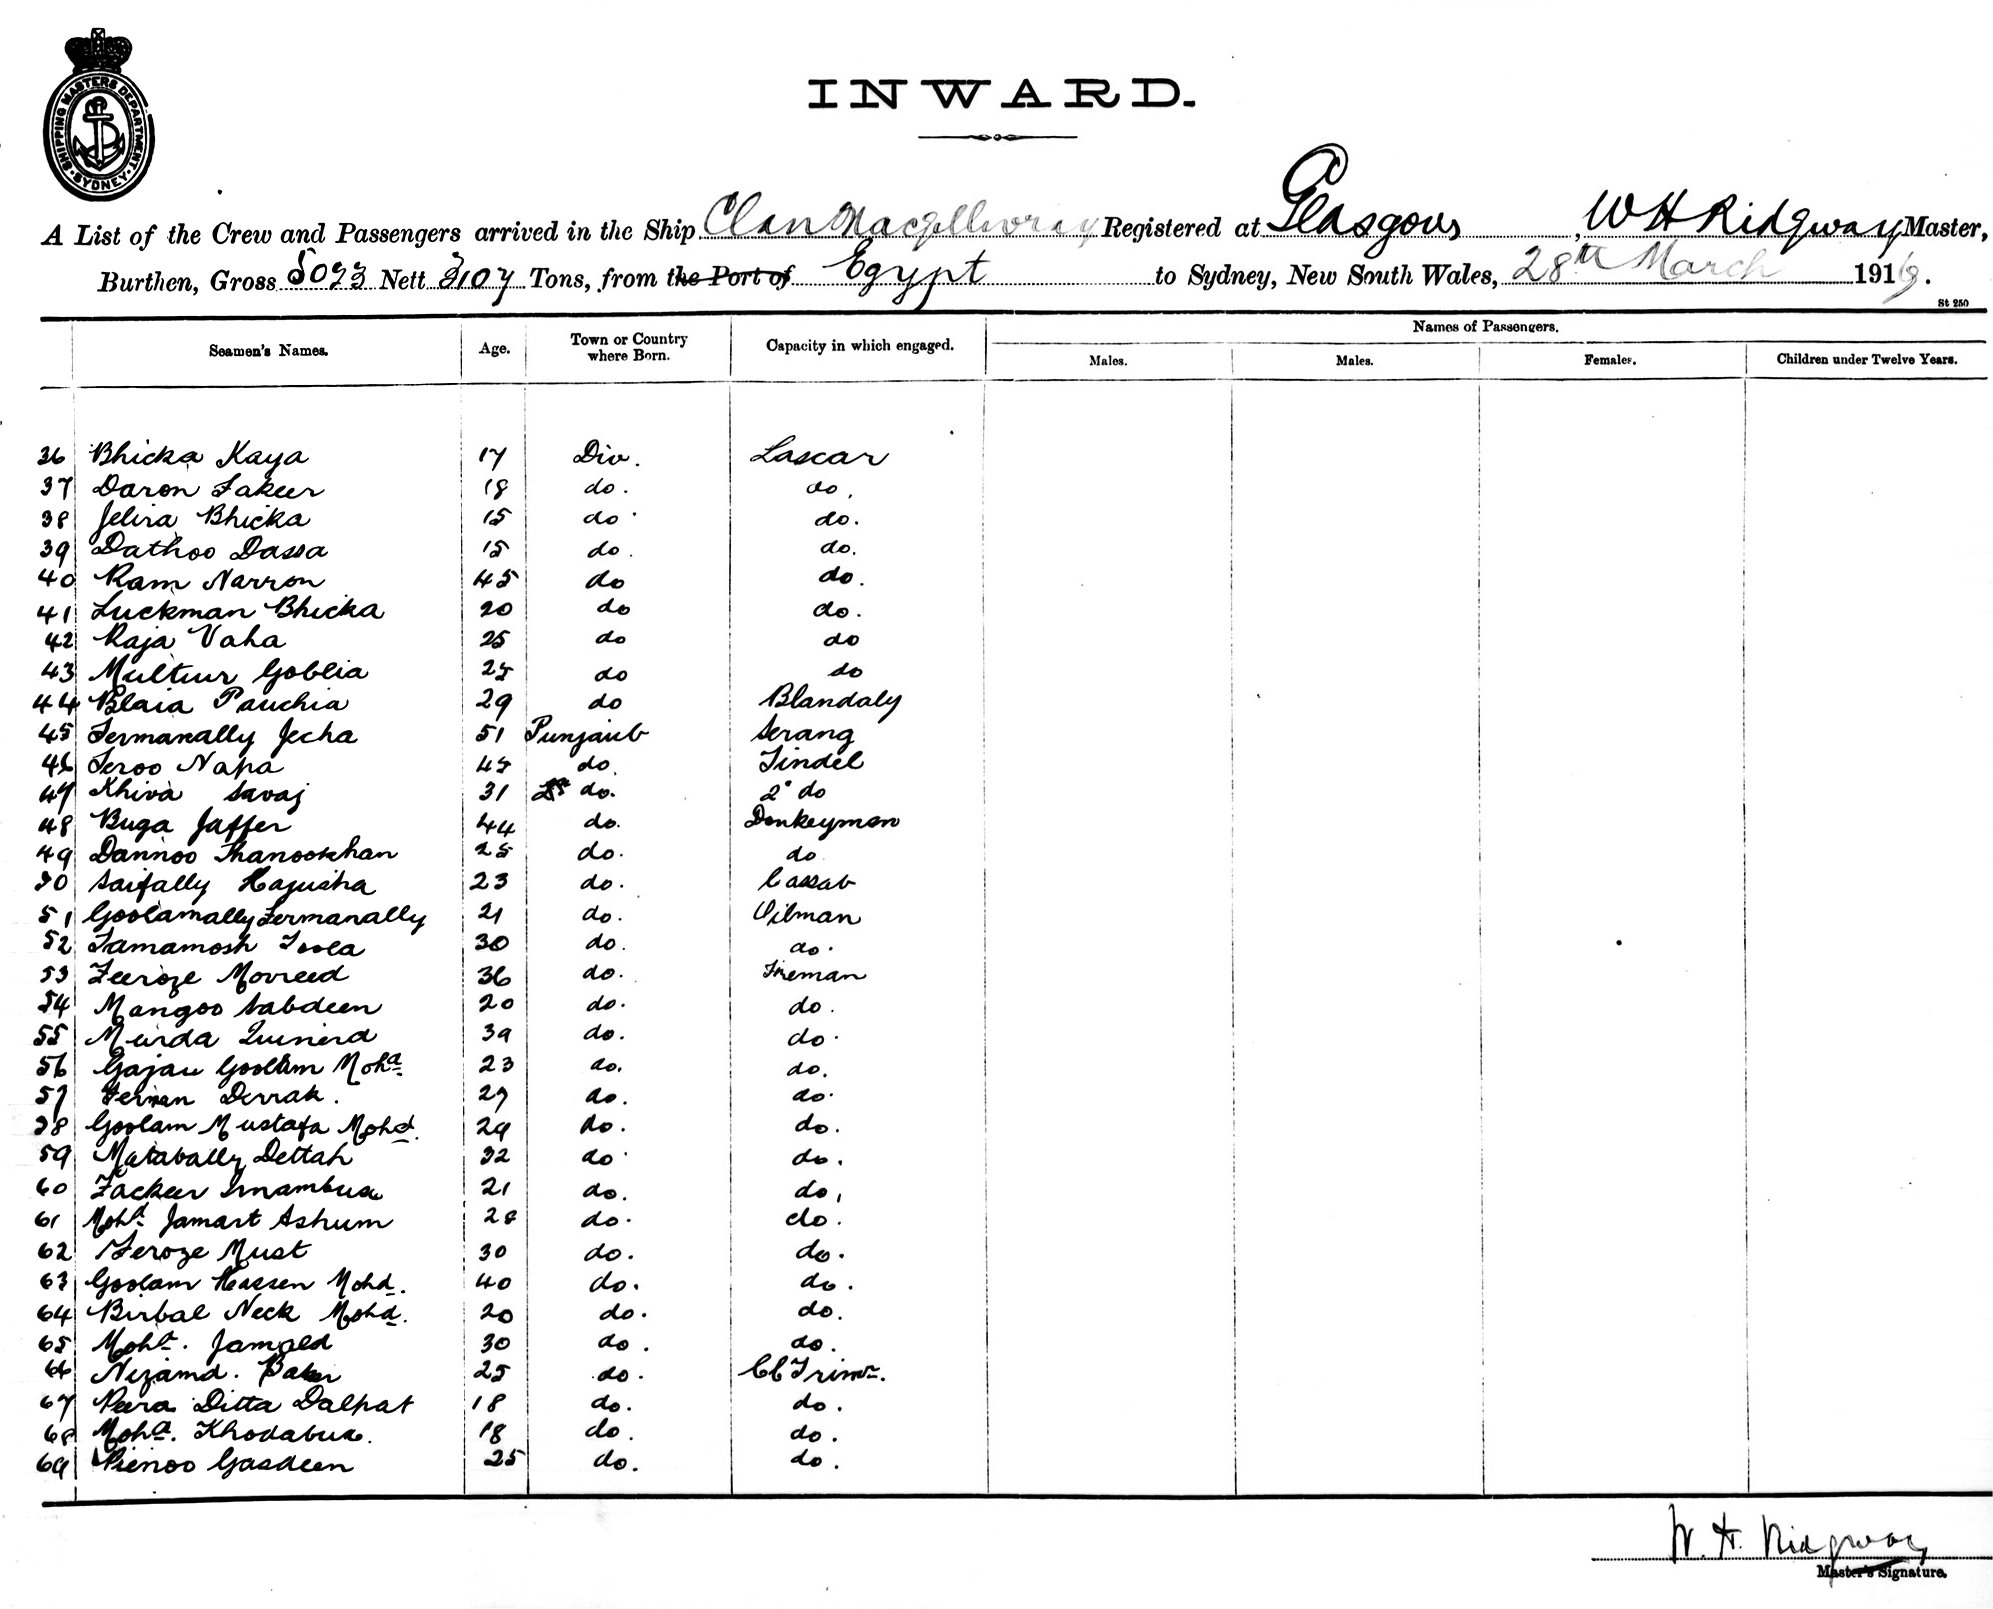 SHIPPING MASTERS DEPARTMENT. SYDNEY.
INWARD.
A List of the Crew and Passengers arrived in the Ship Clan Macgillivray Registered at Glasgow, W H Ridgway Master,
Burthen, Gross 5023 Nett 3107 Tons, from the Port of Egypt to Sydney, New South Wales, 28th March 191
St 250
Seamen's Names. Age. Town or Country where Born. Capacity in which engaged. Names of Passengers.
Males. Males. Females. Children under Twelve Years.
36 Bhicka Kaya 17 Div. Lascar
37 Daron Fakeer 18 do. do.
38 Jelira Bhicka 15 do. do.
39 Dathoo Dassa 15 do. do.
40 Ram Narron 45 do do.
41 Luckman Bhicka 20 do do.
42 Raja Vaha 25 do do
43 Multiur Goblia 25 do do
44 Blaia Pauchia 29 do Blandaly
45 Fermanally Jecha 51 Punjaub Serang
46 Feroo Napa 45 do. Tindel
47 Khiva Savaj 31 do. 2° do
48 Buga Jaffer 44 do. Donkeyman
49 Dannoo Thanookhan 25 do. do
50 Saifally Hajusha 23 do. Cassab
51 Goolamally Fermanally 21 do. Oilman
52 Tamamosh Toola 30 do. do.
53 Feeroze Movreed 36 do. Fireman
54 Mangoo Sabdeen 20 do. do.
55 Murda 39 do. do.
56 Gajau Goolam Mohd 23 do. do.
57 Ferman Derrak. 27 do. do.
58 Goolam Mustafa Mohd. 29 do. do.
59 Matabally Dettah 32 do. do.
60 Fackeer Imambux 21 do. do.
61 Mohd Jamart Ashum 28 do. do.
62 Feroze Must 30 do. do.
63 Goolam Hassen Mohd. 40 do. do.
64 Birbal Neck Mohd. 20 do. do.
65 Mohd. Jamald 30 do. do.
66 Nizamd. Baker 25 do. Cl Trimr.
67 Peera Ditta Dalpat 18 do. do.
68 Mohd. Khodabux. 18 do. do.
69 Pienoo Gasdeen 25 do. do.
W. H. Ridgway
Master's Signature.